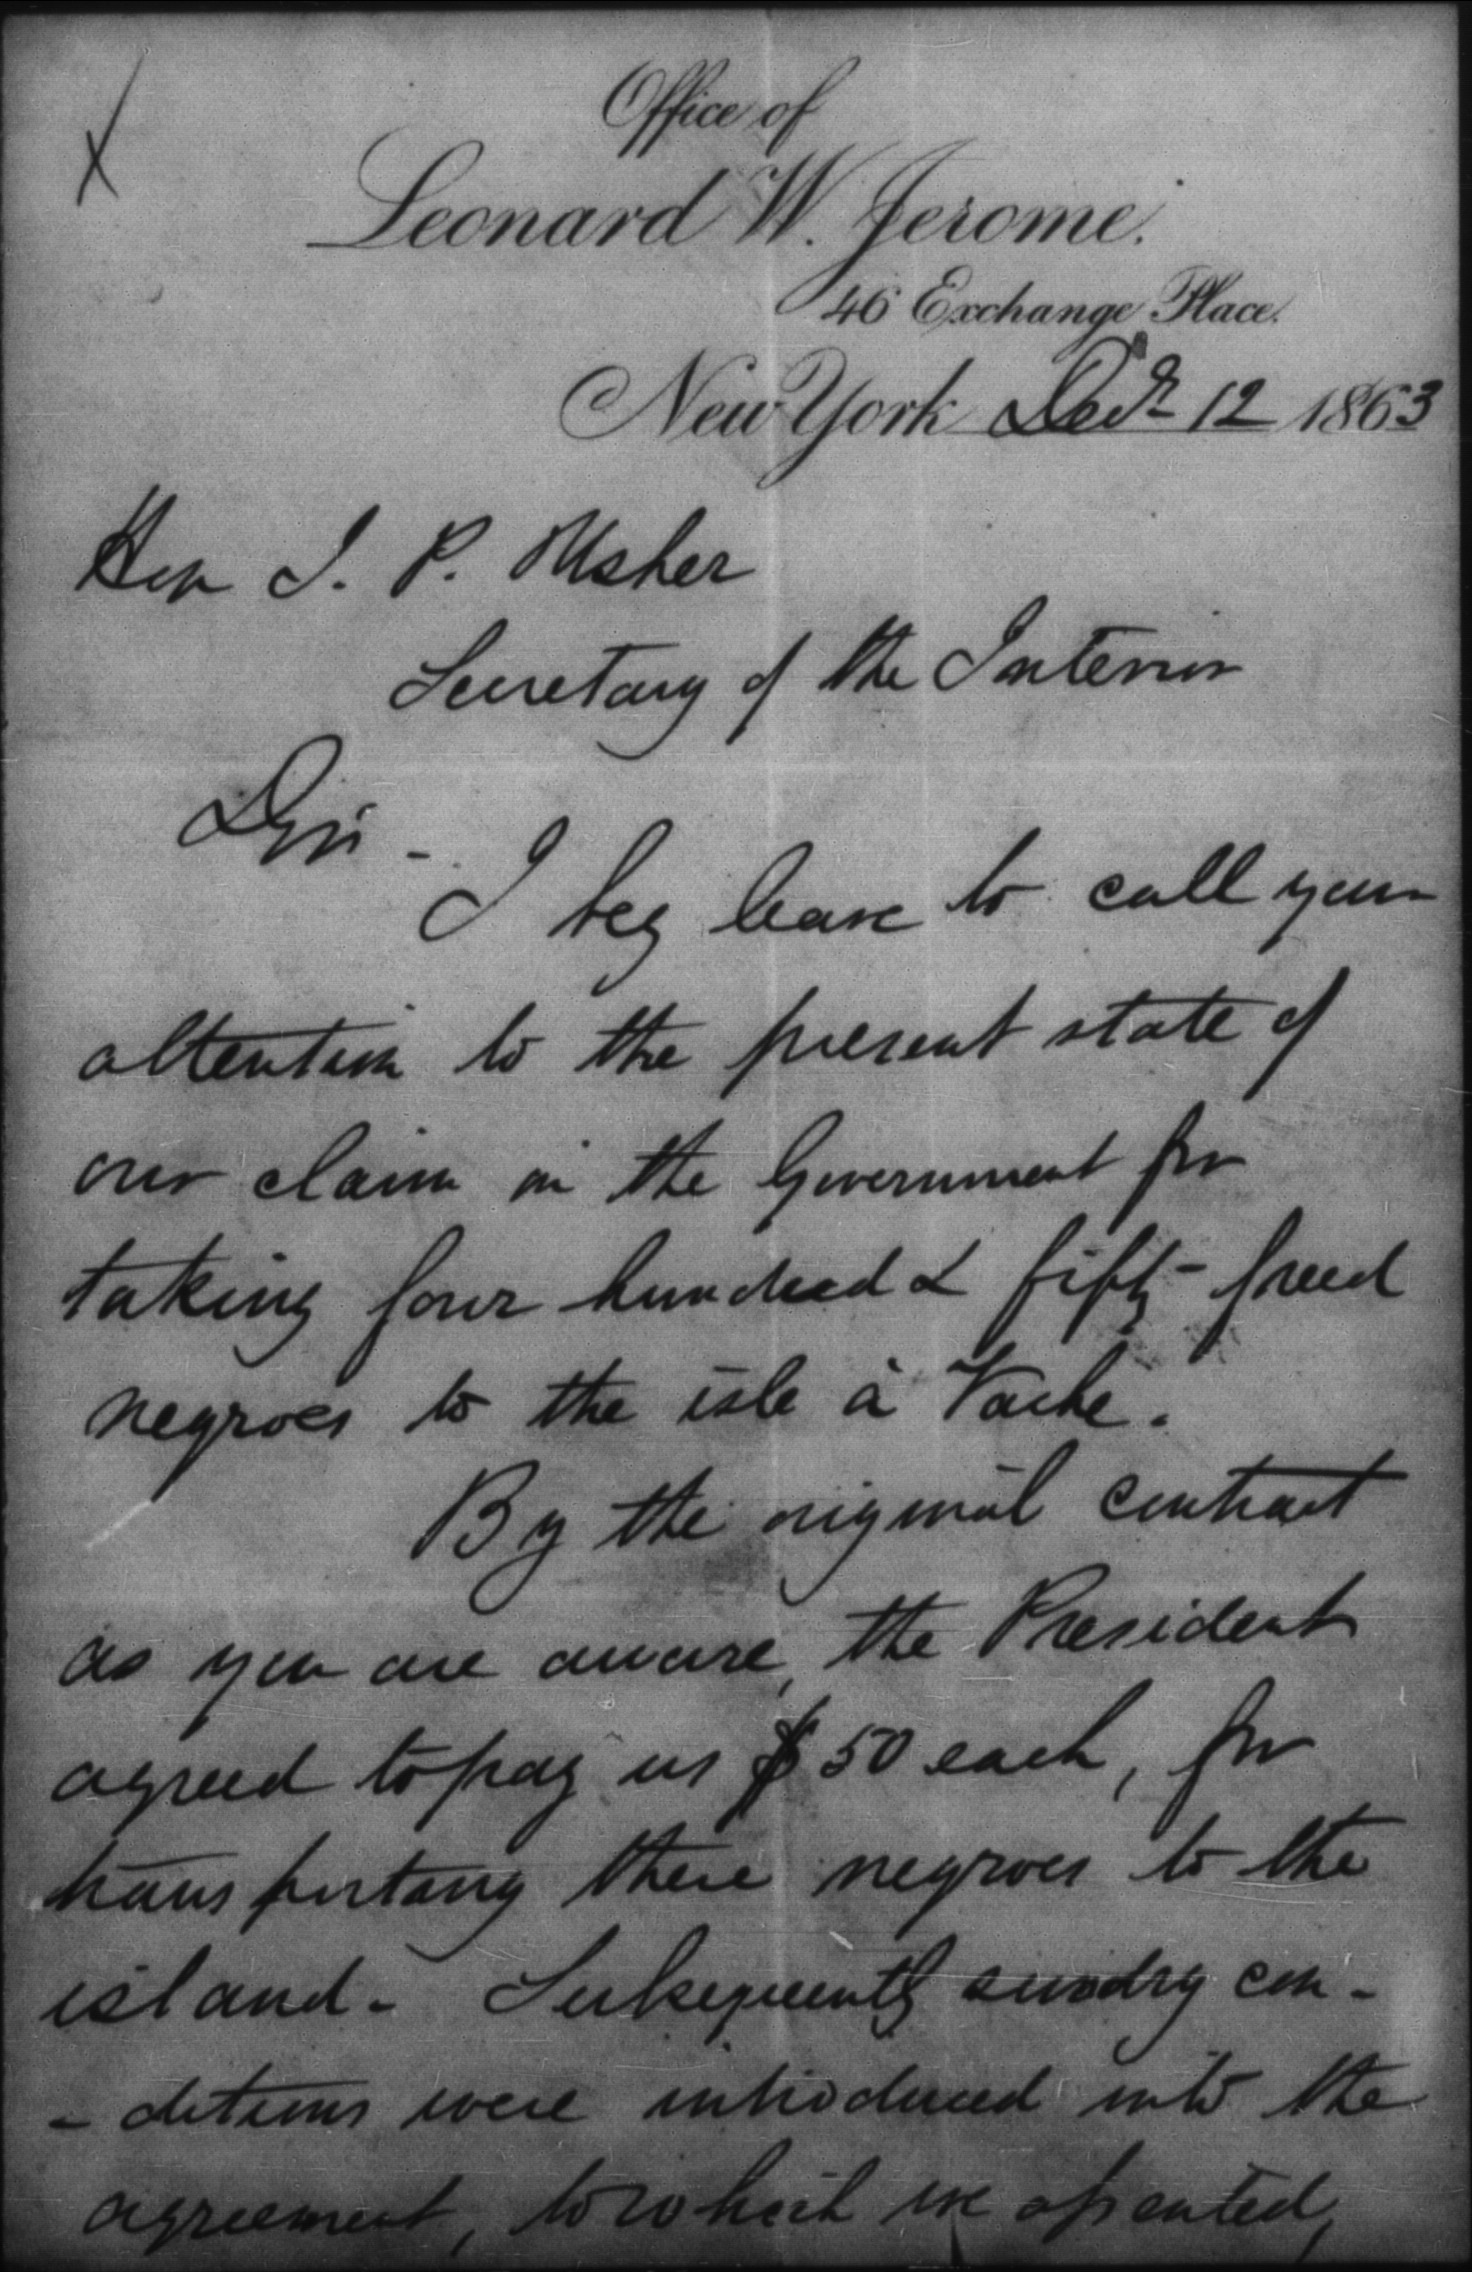 Office of
Leonard W. Jerome.
46 Exchange Place.
New York Decr 12 1863
Hon J. P. Usher
Secretary of the Interior
D Sir -
I beg leave to call your
attention to the present state of
our claim on the Government for
taking four hundred & fifty freed
negroes to the isle à Vache.
By the original contract
as you are aware, the President
agreed to pay us $50 each, for
transporting these negroes to the
island - Subsequently sundry con-
-ditions were introduced into the
agreement, to which we assented,